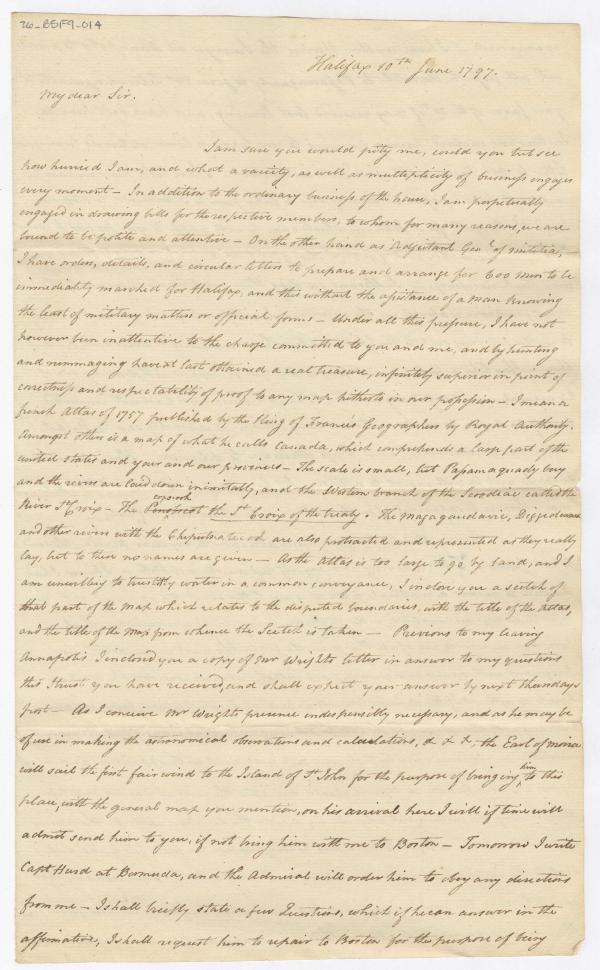 26-BSF9-014
Halifax 10th June 1797.
My dear Sir.
I am sure you would pity me, could you but see
how hurried I am, and what a variety, as well as multiplicity of business engages
every moment — In addition to the ordinary business of the house, I am perpetually
engaged in drawing bills for the respective members, to whom for many reasons, we are
bound to be polite and attentive — On the other hand as Adjutant Genl of militia,
I have orders, details, and circular letters to prepare and arrange for 600 men to be
immediatily marched for Halifax, and this without the assistance of a man knowing
the least of military matters or official forms — Under all this pressure, I have not
however been inattentive to the charge committed to you and me, and by hunting
and rummaging have at last obtained a real treasure, infinitely superior in point of
correctness and respectability of proof to any map hitherto in our possession — I mean a
french Attlas of 1757 published by the King of Francis Geographers by Royal Authority.
Amongst others is a map of what he calls Canada, which comprehends a large part of the
united states and your and our provinces — The scale is small, but Passamaquady bay
and the rivers are laid down inimitably, and the Western branch of the Scoodiac called the
River St Croix — The the St Croix of the treaty. The Magagaudavic, Diggedauach
and other rivers with the are also protracted and represented as they really
lay, but to them no names are given — As the Attlas is too large to go by land, and I
am unwilling to trust by water in a common conveyance, I inclose you a scetch of
that part of the map which relates to the disputed boundaries, with the title of the Attlas,
and the title of the Map from whence the Scetch is taken — Previous to my leaving
Annapolis I inclosed you a copy of Mr Wrights letter in answer to my questions
this I trust you have received, and shall expect your answer by next thursdays
post — As I conceive Mr Wrights presence indispensibly necessary, and as he may be
of use in making the astronomical observations and calculations, & & &, the Earl of Moira
will sail the first fair wind to the Island of St John for the purpose of bringing him to this
place, with the general map you mention, on his arrival here I will if time will
admit send him to you, if not bring him with me to Boston — Tomorrow I write
Capt Hurd at Bermuda, and the Admiral will order him to obey any directions
from me — I shall briefly state a few Questions, which if he can answer in the
affirmative, I shall request him to repair to Boston for the purpose of being